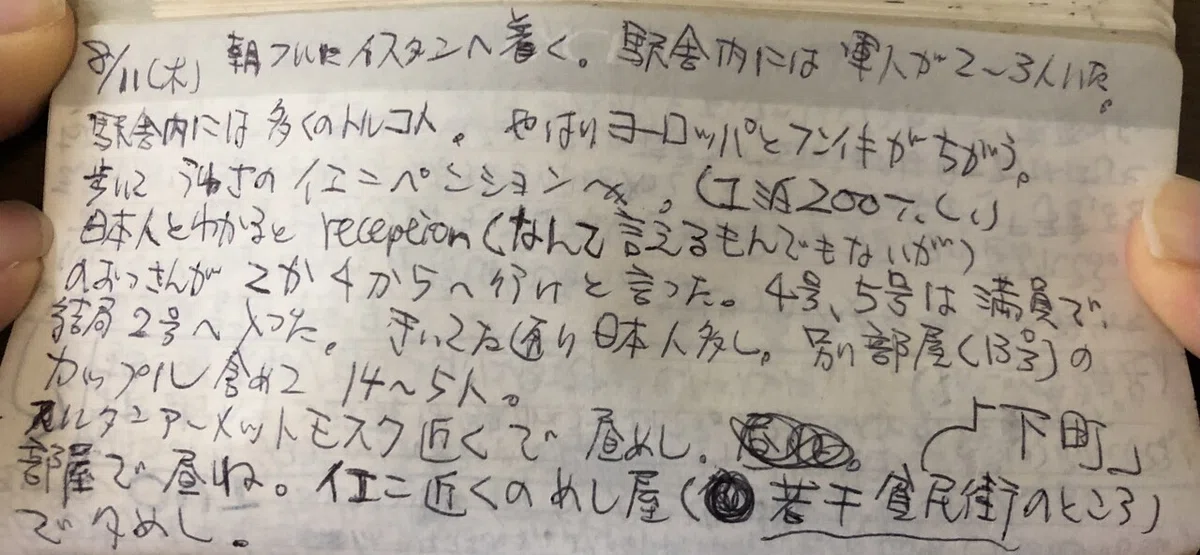 8/11(木) 朝ついにイスタンへ着く。駅舎内には軍人が2〜3人いた。
駅舎内には多くのトルコ人。やはりヨーロッパとフンイキがちがう。
歩いてうわさのイエニペンションへ。(1泊200T.L.)
日本人とわかると reception(なんて言えるもんでもないが)
のおっさんが 2か4か5へ行けと言った。4号、5号は満員で、
結局2号へ入った。きいてた通り日本人多し。別部屋(13号)の
カップル含めて 14〜5人。
スルタンアーメットモスク近くで昼めし。
「下町」
部屋で昼ね。イエニ近くのめし屋(若干貧民街のところ)
で夕めし。